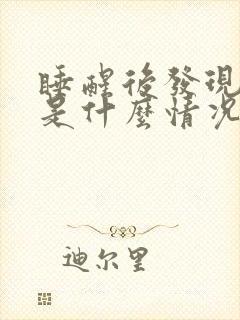 睡醒後發現
是什麼情況
迪尔里